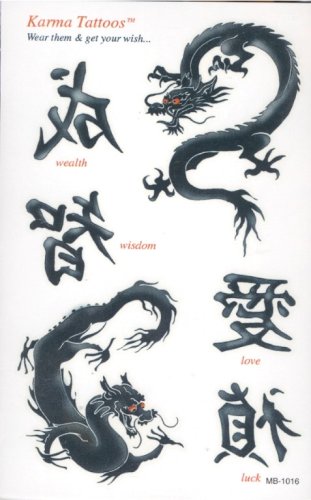 Karma Tattoos™
Wear them & get your wish...
wealth
智
wisdom
愛
love
禎
luck
MB-1016